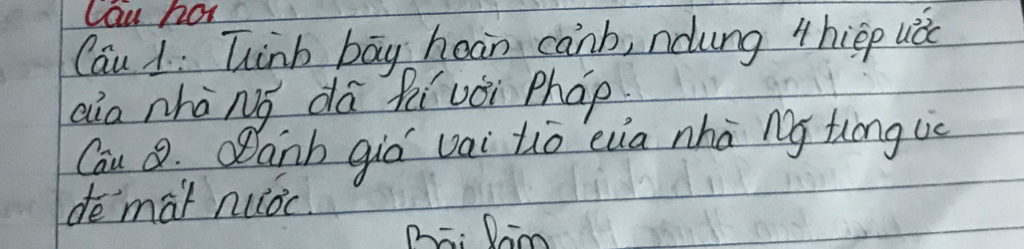 Câu hỏi
Câu 1: Trình bày hoàn cảnh, ndung 4 hiệp ước
của nhà Ng~ đã kí với Pháp.
Câu 2. Đánh giá vai trò của nhà Ng~ trong vc
để mất nước.
Bài làm